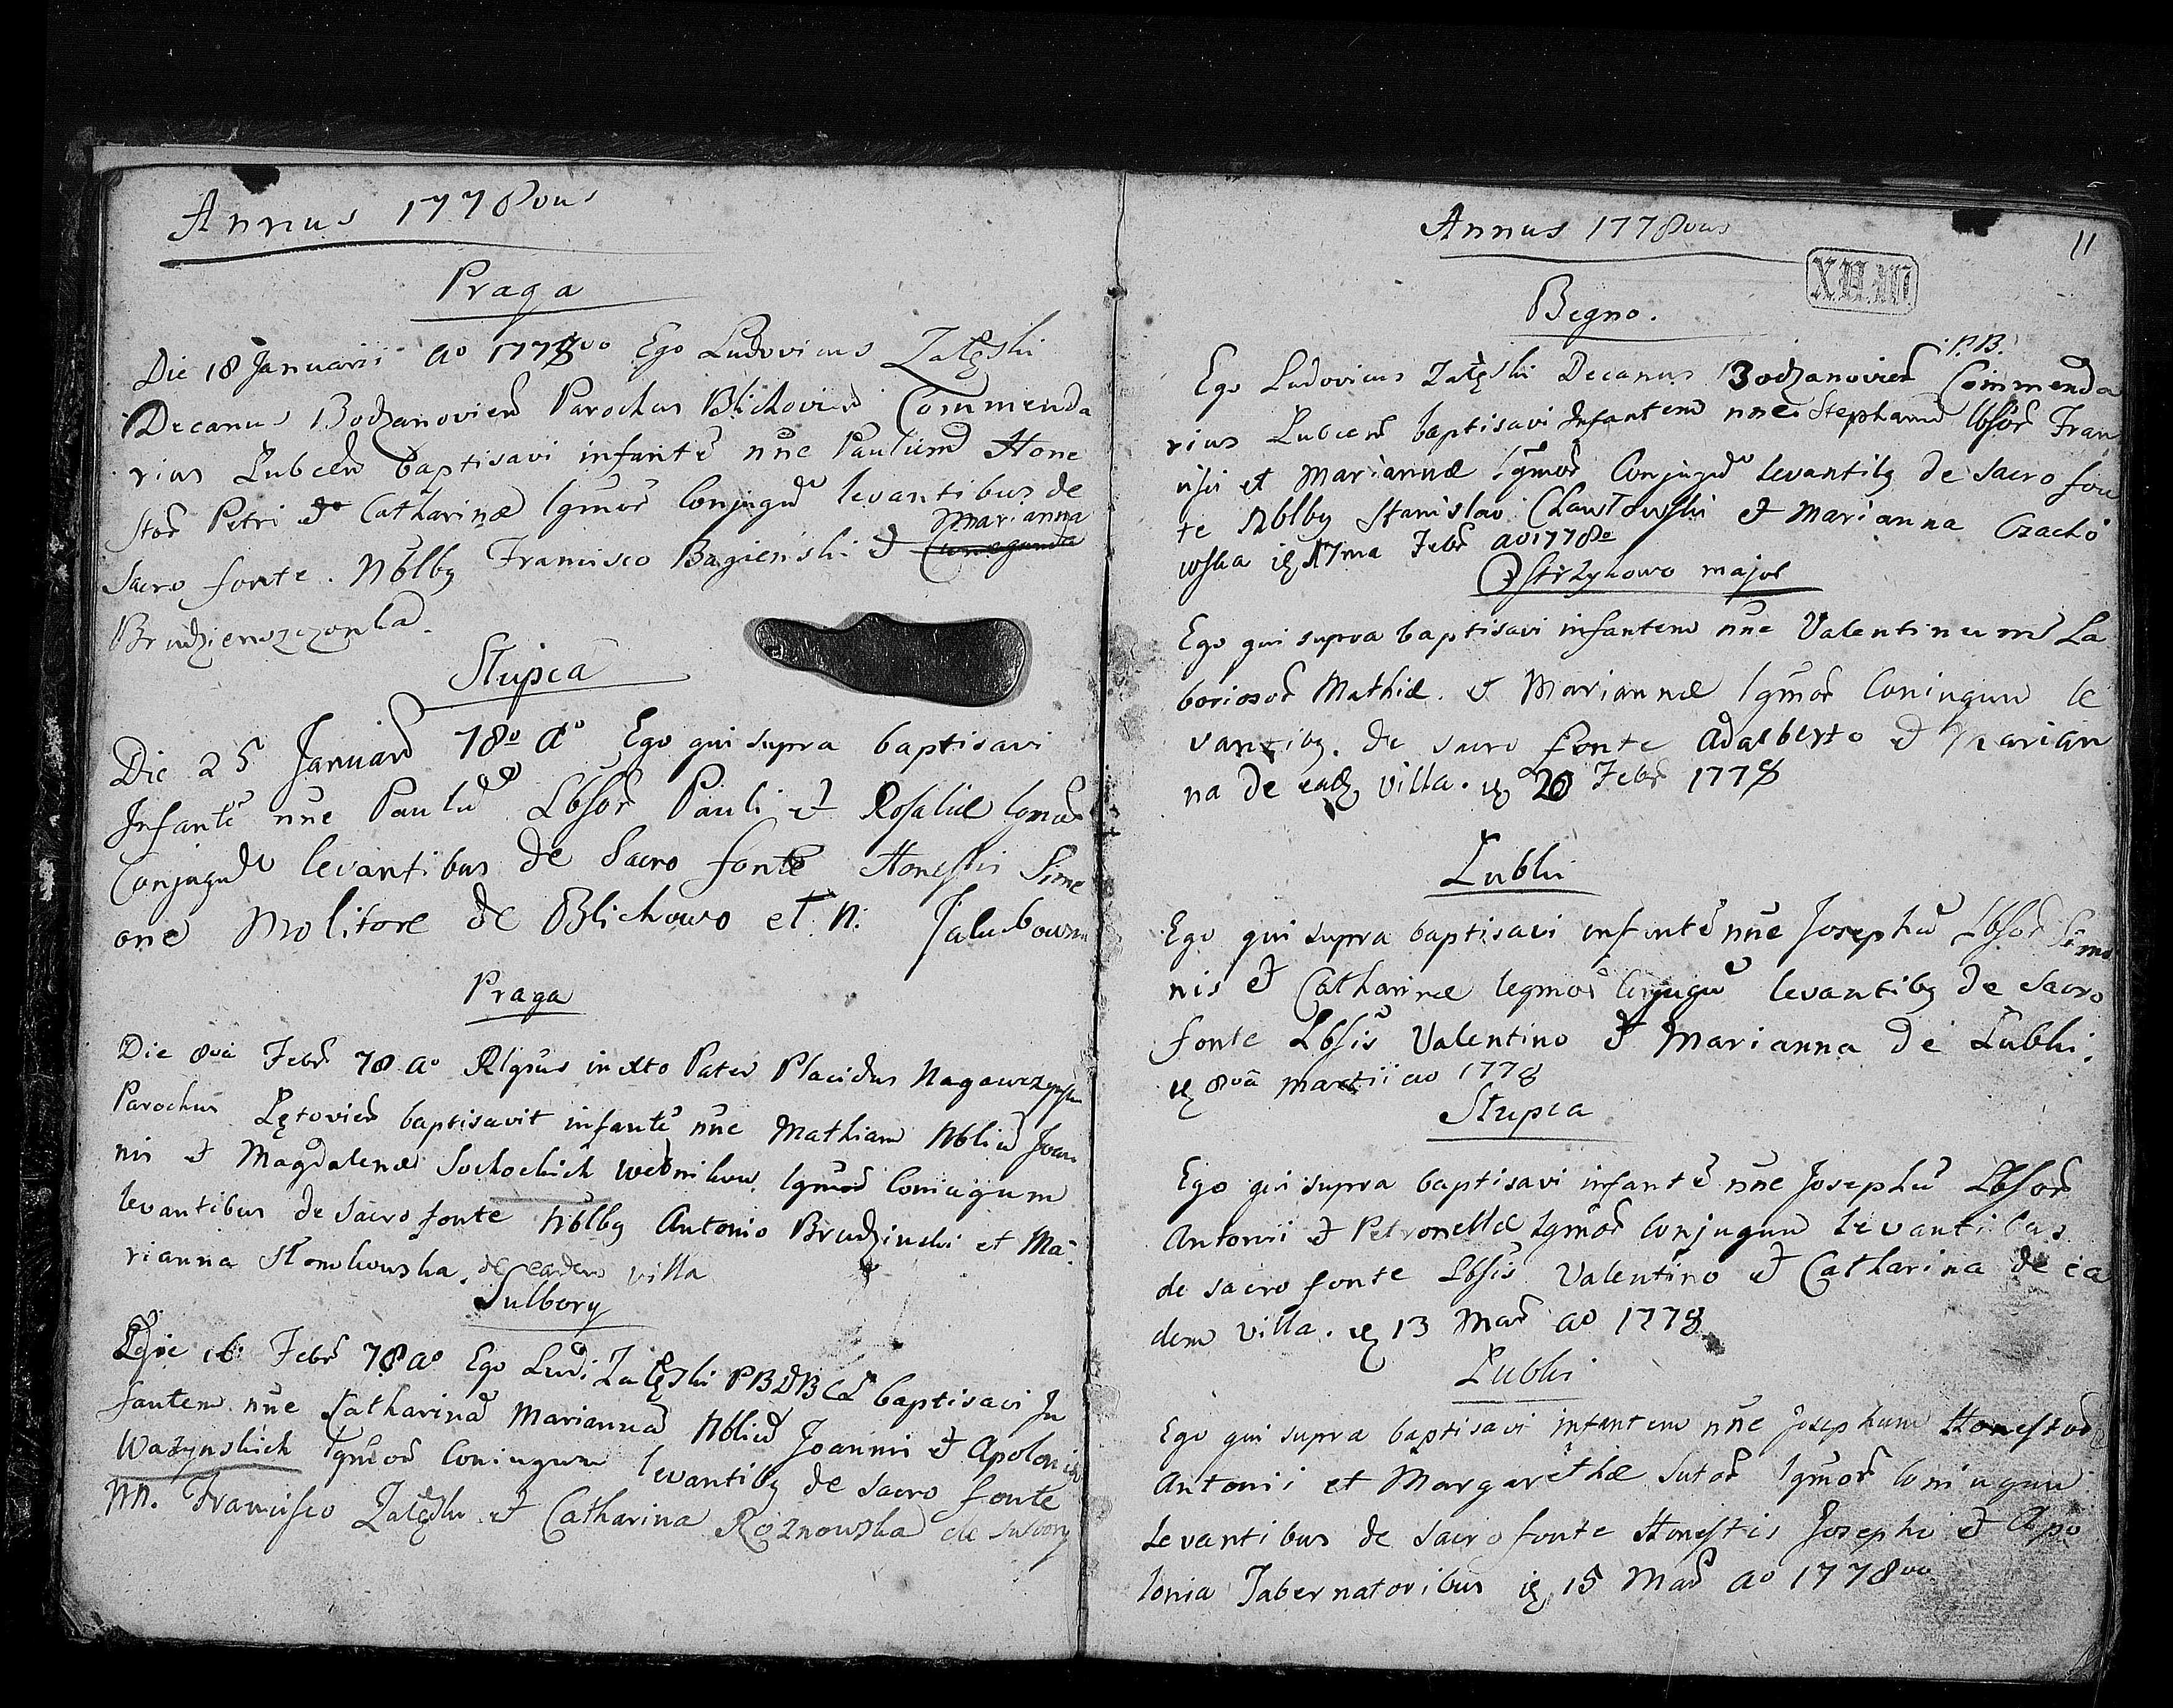 Annus 1778vus
Praga
Die 18 Januarii ao 1778vo Ego Ludovicus Załęski
Decanus Bodzanovien Parochus Blichovien Commenda
rius Lubcen baptisavi infantē nn̄e Paulum Hone
stor Petri et Catharinæ lgm̄or Conjugū levantibus de
Marianna
Sacro fonte. Nblbg Francisco Bagieński et Cunegunda
Brudzienszczonka.
Słupca
Die 25 Januar 78o Ao Ego qui supra baptisavi
Infantē nn̄e Paulū Lbsor Pauli et Rosaliæ lgmor
Conjugū levantibus de Sacro fonte Honestis Sime
one Molitore de Blichowo et N: Jakubowna
Praga
Die 8va Febr 78 ao Rlgsus in Xto Pater Placidus
Parochus Łętovien baptisavit infantē nn̄e Mathiam Nbliū Joan
nis et Magdalenæ Sochockich lgmor Coniugum
levantibus de Sacro fonte Nblbg Antonio Brudzinski et Ma
rianna Słomkowska. de eadem villa
Sulbory
Die 16 Febr 78 ao Ego Ludi Załęski PBDBCL baptisavi In
fantem nn̄e Katharinam Mariannam Nbliū Joannis et Apoloniæ
Ważynskich lgm̄or Coniugum levantibg de Sacro fonte
NN. Francisco Załęski et Catharina Roznowska de Sulbory
Annus 1778vus
11
Begno.
P.B.
Ego Ludovicus Załęski Decanus Bodzanovien Commenda
rius Lubcen baptisavi Infantem nn̄e Stephanū Lbsor Fran
cisci et Mariannæ lgm̄or Conjugū levantibg de Sacro fon
te Nblbg Stanislao Chawłowski et Marianna Czacho
wska 17ma Febr ao 1778o
Ostrzykowo major
Ego qui supra baptisavi infantem nn̄e Valentinum La
boriosor Mathiæ. et Mariannæ lgm̄or Coniugum le
vantibg. de sacro fonte Adalberto et Marian
na de ead villa. 20 Febr 1778
Lubki
Ego qui supra baptisavi infantē nn̄e Josephū Lbsor Simo
nis et Catharinæ legmor Conjugū levantibg de Sacro
fonte Lbsis Valentino et Marianna de Lubki.
8vā martii ao 1778
Słupca
Ego qui supra baptisavi infantē nn̄e Josephū Lbsor
Antonii et Petronellæ lgm̄or conjugum levantibus
de sacro fonte Lbsis Valentino et Catharina de ea
dem villa. 13 Mar ao 1778
Lubki
Ego qui supra baptisavi infantem nn̄e Josephum Honestor
Antonii et Margarethæ Sutor lgm̄or Coniugum
Levantibus de Sacro fonte Honestis Josepho et Apo
lonia Tabernatoribus 15 Mar ao 1778vo